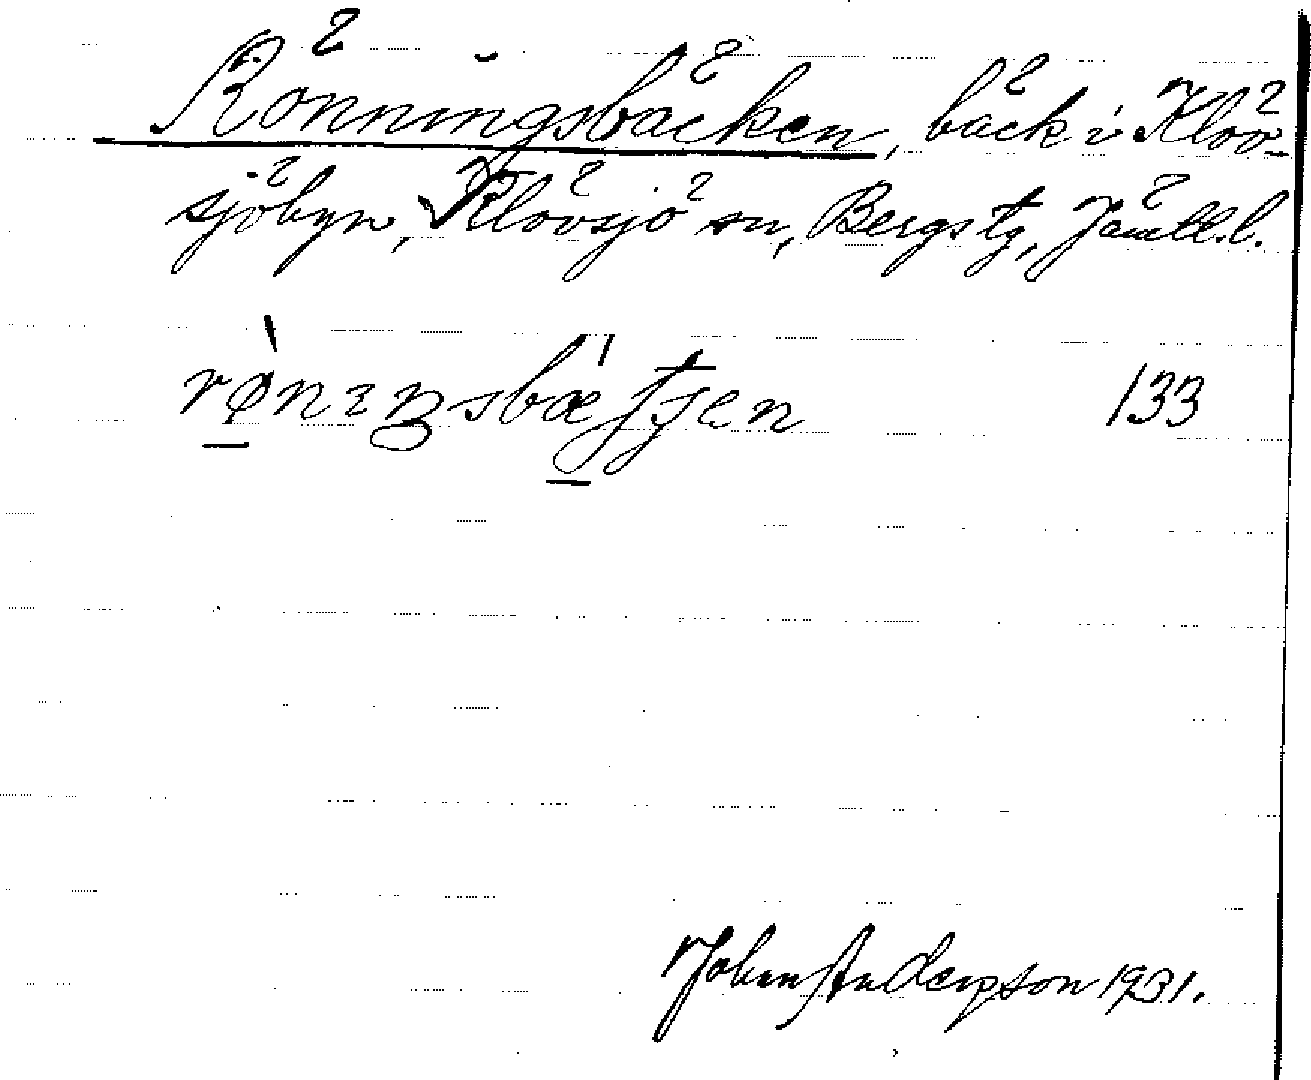 Rönningsbäcken, bäck i Klöv-
sjöbyn, Klövsjö sn, Bergs tg, Jämtl. l.
133
John Anderson 1931.